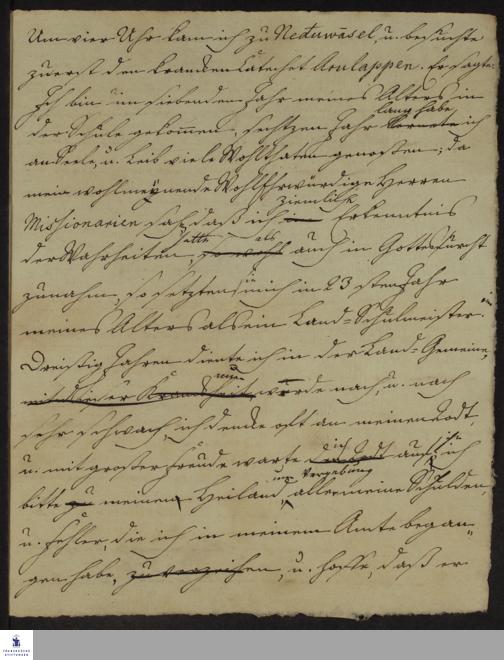 Um vier Uhr kam ich zu Neduwāsel, u. besuchte
zuerst den kranken Catechet Arulappen. Er sagte:
Ich bin im siebenden Jahr meines Alters in
der Schule gekom̄en, sechtzen Jahr lang habe ich
an Seele, u. Leib viele Wohlthaten genoßen; da
mein wohlmeynende Wohlehrwürdige Herren
Missionarien sah, daß ich ziemliche Erkenntnis
der Wahrheiten hatte, als auch in Gottesfurcht
zunahm, so setzten sie mich in 23 sten Jahr
meines Alters als ein Land-Schulmeister. in
Dreißig Jahren diente ich in der Land-Gemeine,
mit dieser Krankheit nun werde nach, u. nach
sehr schwach, ich denke oft an meinen Todt,
u. mit großer Freude warte ich auf ihn, ich
bitte meinen Heiland, um Vergebung alle meine Schulden,
u. Fehler, die ich in meinem Amte began-
gen habe, zu verzeihen, u. hoffe, daß er
FRANCKESCHE
STIFTUNGEN